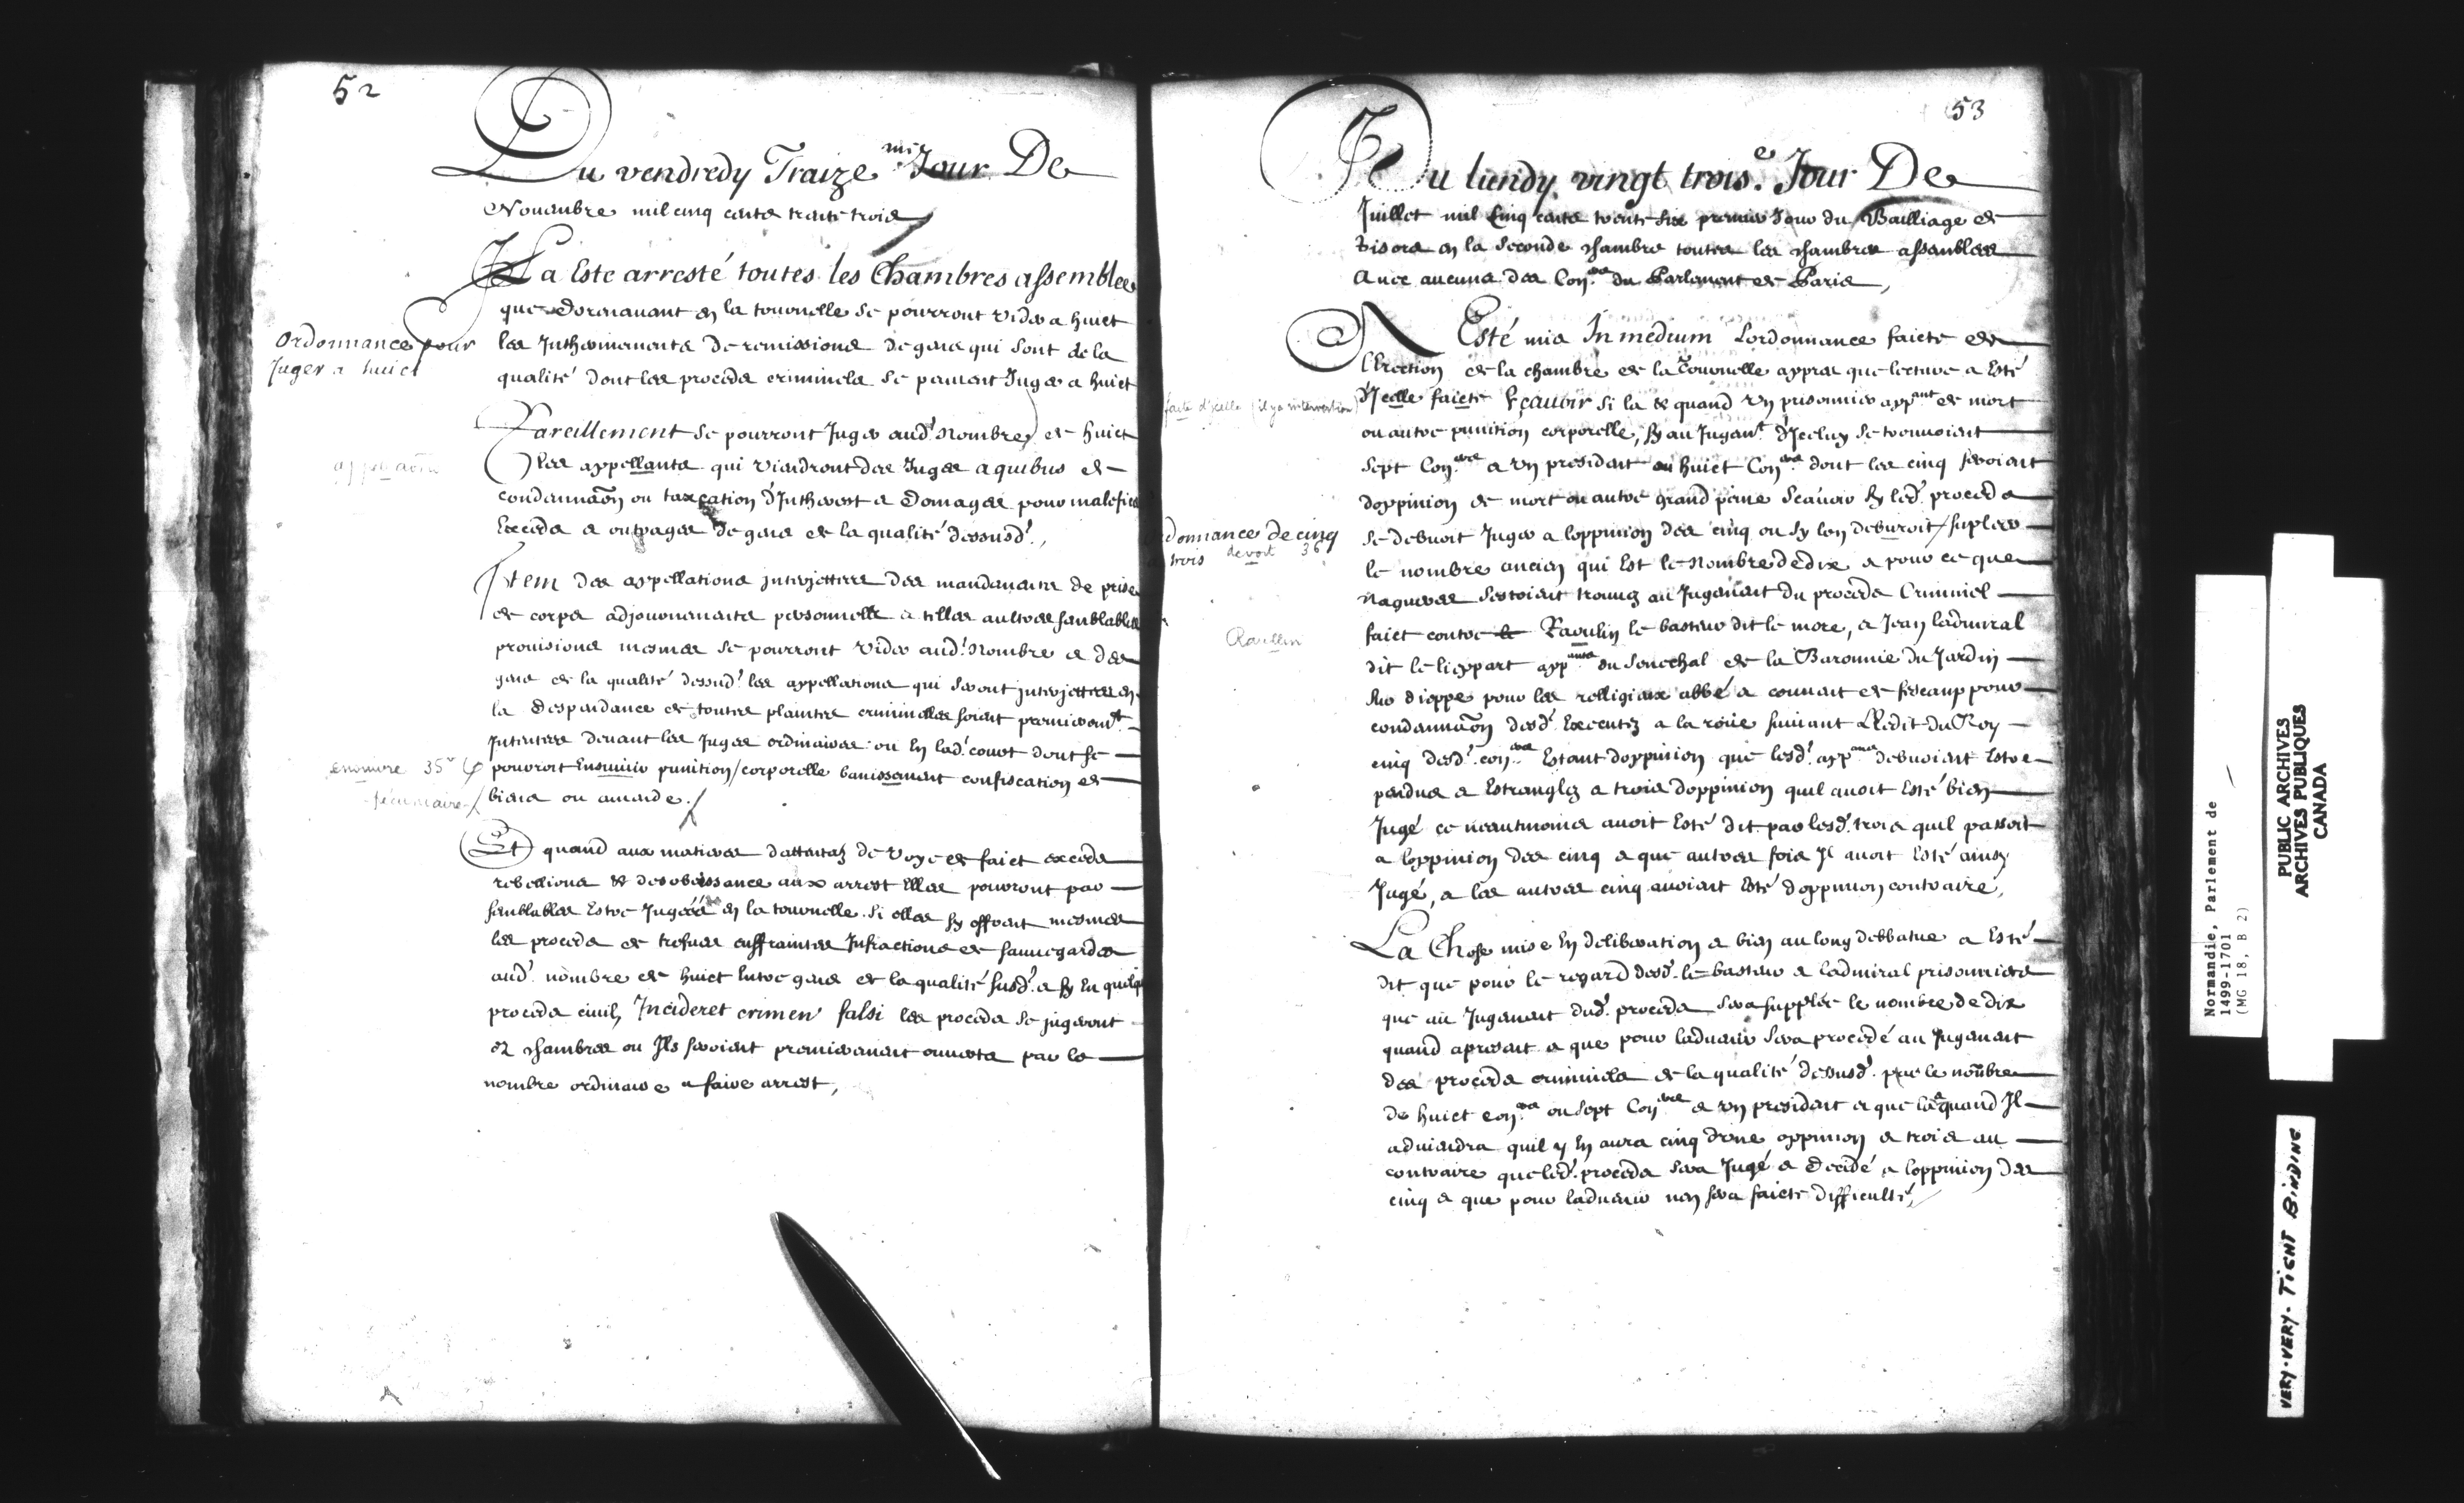 52
Du vendredy Traize.me Jour De
Nouembre mil cinq cents trente trois
Il a Este arresté toutes les Chambres assemblees
que Dorenauant en la tournelle se pourront vider a huict
Ordonnance pour
Juger a huict
les Intherinements de remissions de gens qui sont de la
qualité dont les proceds criminels se peuuent Juger a huict
Pareillement se pourront Juger aud. nombre de huict
les appellants qui viendront des Juges a quibus de
condemnaon ou taxation d'Intherest & Domages pour malefices
Exceds & outrages de gens de la qualité dessusd.
Item des appellations interjettees des mandements de prise
de corps adjournements personnelz & telles aultres semblables
prouisions mesmes se pourront vider aud. Nombre & des
gens de la qualité dessusd. les appellations qui seront interjettees en
la Despendance de toutes plaintes criminelles soient premierem.t
Intentees deuant les Juges ordinaires ou En lad. court dont se
ensuivre 35 v
pouroit Ensuiuir punition corporelle banissement confiscation de
pécuniaire
biens ou amende.
Et quand aux matieres d'attentatz de voye de faict exceds
rebellions & desobeissance aux arrest Elles pourront par
semblables Estre Jugées en la tournelle. Si elles sy offrent mesmes
les proceds de trefues enffraintes Infractions de sauuegardes
aud. nombre de huict Entre gens de la qualité susd. & sy En quelque
proceds ciuil, Incideret crimen falsi les proceds se jugeront
ez chambres ou Ils seroient premierement ouuerts par le
nombre ordinaire a faire arrest,
53
Du lundy vingt trois.e Jour De
Juillet mil Cinq cents trente six premier Jour du Bailliage de
Gisors en la Seconde chambre toutes les chambres assemblees
Auec aucuns des Con.ers du Parlement de Paris,
A Esté mis In medium Lordonnance faicte de
L'Erection de la chambre de la Tournelle appres que lecture a Esté
faite d'icelle (il y a intervention)
d'Jcelle faicte Sçauoir si la & quand un prisonnier app.ant de mort
ou autre punition corporelle, sy au Jugem.t d'Jceluy se trouuoient
sept Con.ers & un president ou huict Con.ers dont les cinq seroient
doppinion de mort ou autre grand peine Scauoir sy led. proceds
ordonnance de cinq
a trois devoit 36
se debuoit Juger a loppinion des cinq ou sy lon deburoit supleer
le nombre ancien qui Est le nombre de dix & pour ce que
Nagueres sestoient trouuez au Jugement du proceds Criminel
Raullin
faict contre Raoulin le basteur dit le more, & Jean ladmiral
dit le lieppart app.ants du Senechal de la Baronnie du Jardin
sur dieppe pour les relligieux abbé & conuent de fescamp pour
condemnaon desd. Executez a la roüe suiuant L'Edit du Roy
cinq desd. con.ers Estant doppinion que lesd. app.ants debuoient Estre
pendus & Estranglez & trois doppinion quil auoit Esté bien
Jugé ce neantmoins auoit Esté dit par lesd. trois quil passoit
a loppinion des cinq & que autres fois Jl auoit Esté ainsy
Jugé, & les autres cinq auoient Esté doppinion contraire,
La Chose mise En deliberation & bien au long debbatue a Esté
dit que pour le regard desd. le basteur & ladmiral prisonniers
que au Jugement dud. proceds sera suppléé le nombre de dix
quand apresent & que pour laduenir sera procedé au Jugement
des proceds criminels de la qualité dessusd. par le nombre
de huict con.ers ou sept Con.ers & un president & que la & quand Jl
aduiendra quil y En aura cinq d'une oppinion & trois au
contraire que led. proceds sera Jugé & Decidé a loppinion des
cinq & que pour laduenir nen sera faicte difficulté,
Normandie, Parlement de
1499-1701
(MG 18, B 2)
PUBLIC ARCHIVES
ARCHIVES PUBLIQUES
CANADA
VERY-VERY-TIGHT BINDING